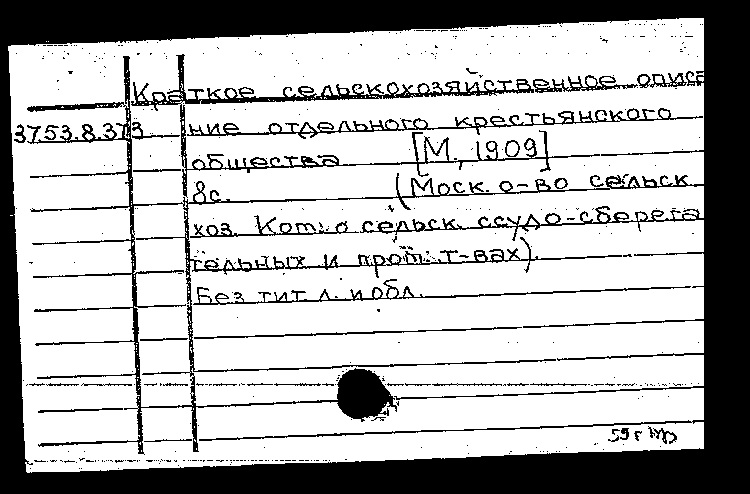 Краткое сельскохозяйственное описа
37.53.8.373 ние отдельного крестьянского
общества [М., 1909]
8с. (Моск. о-во сельск.
хоз. Ком. о сельск. ссудо-сберега
тельных и пром. т-вах).
Без тит. л. и обл.